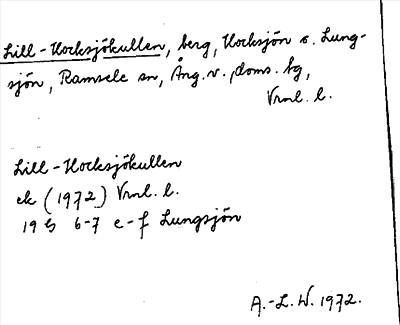 Lill-Hocksjökullen, berg, Hocksjön o. Lung-
sjön, Ramsele sn, Ång. v. doms. hg,
Vrnl. l.
Lill-Hocksjökullen
ek (1972) Vrnl. l.
19 G 6-7 e-f Lungsjön
A.-L. W. 1972.